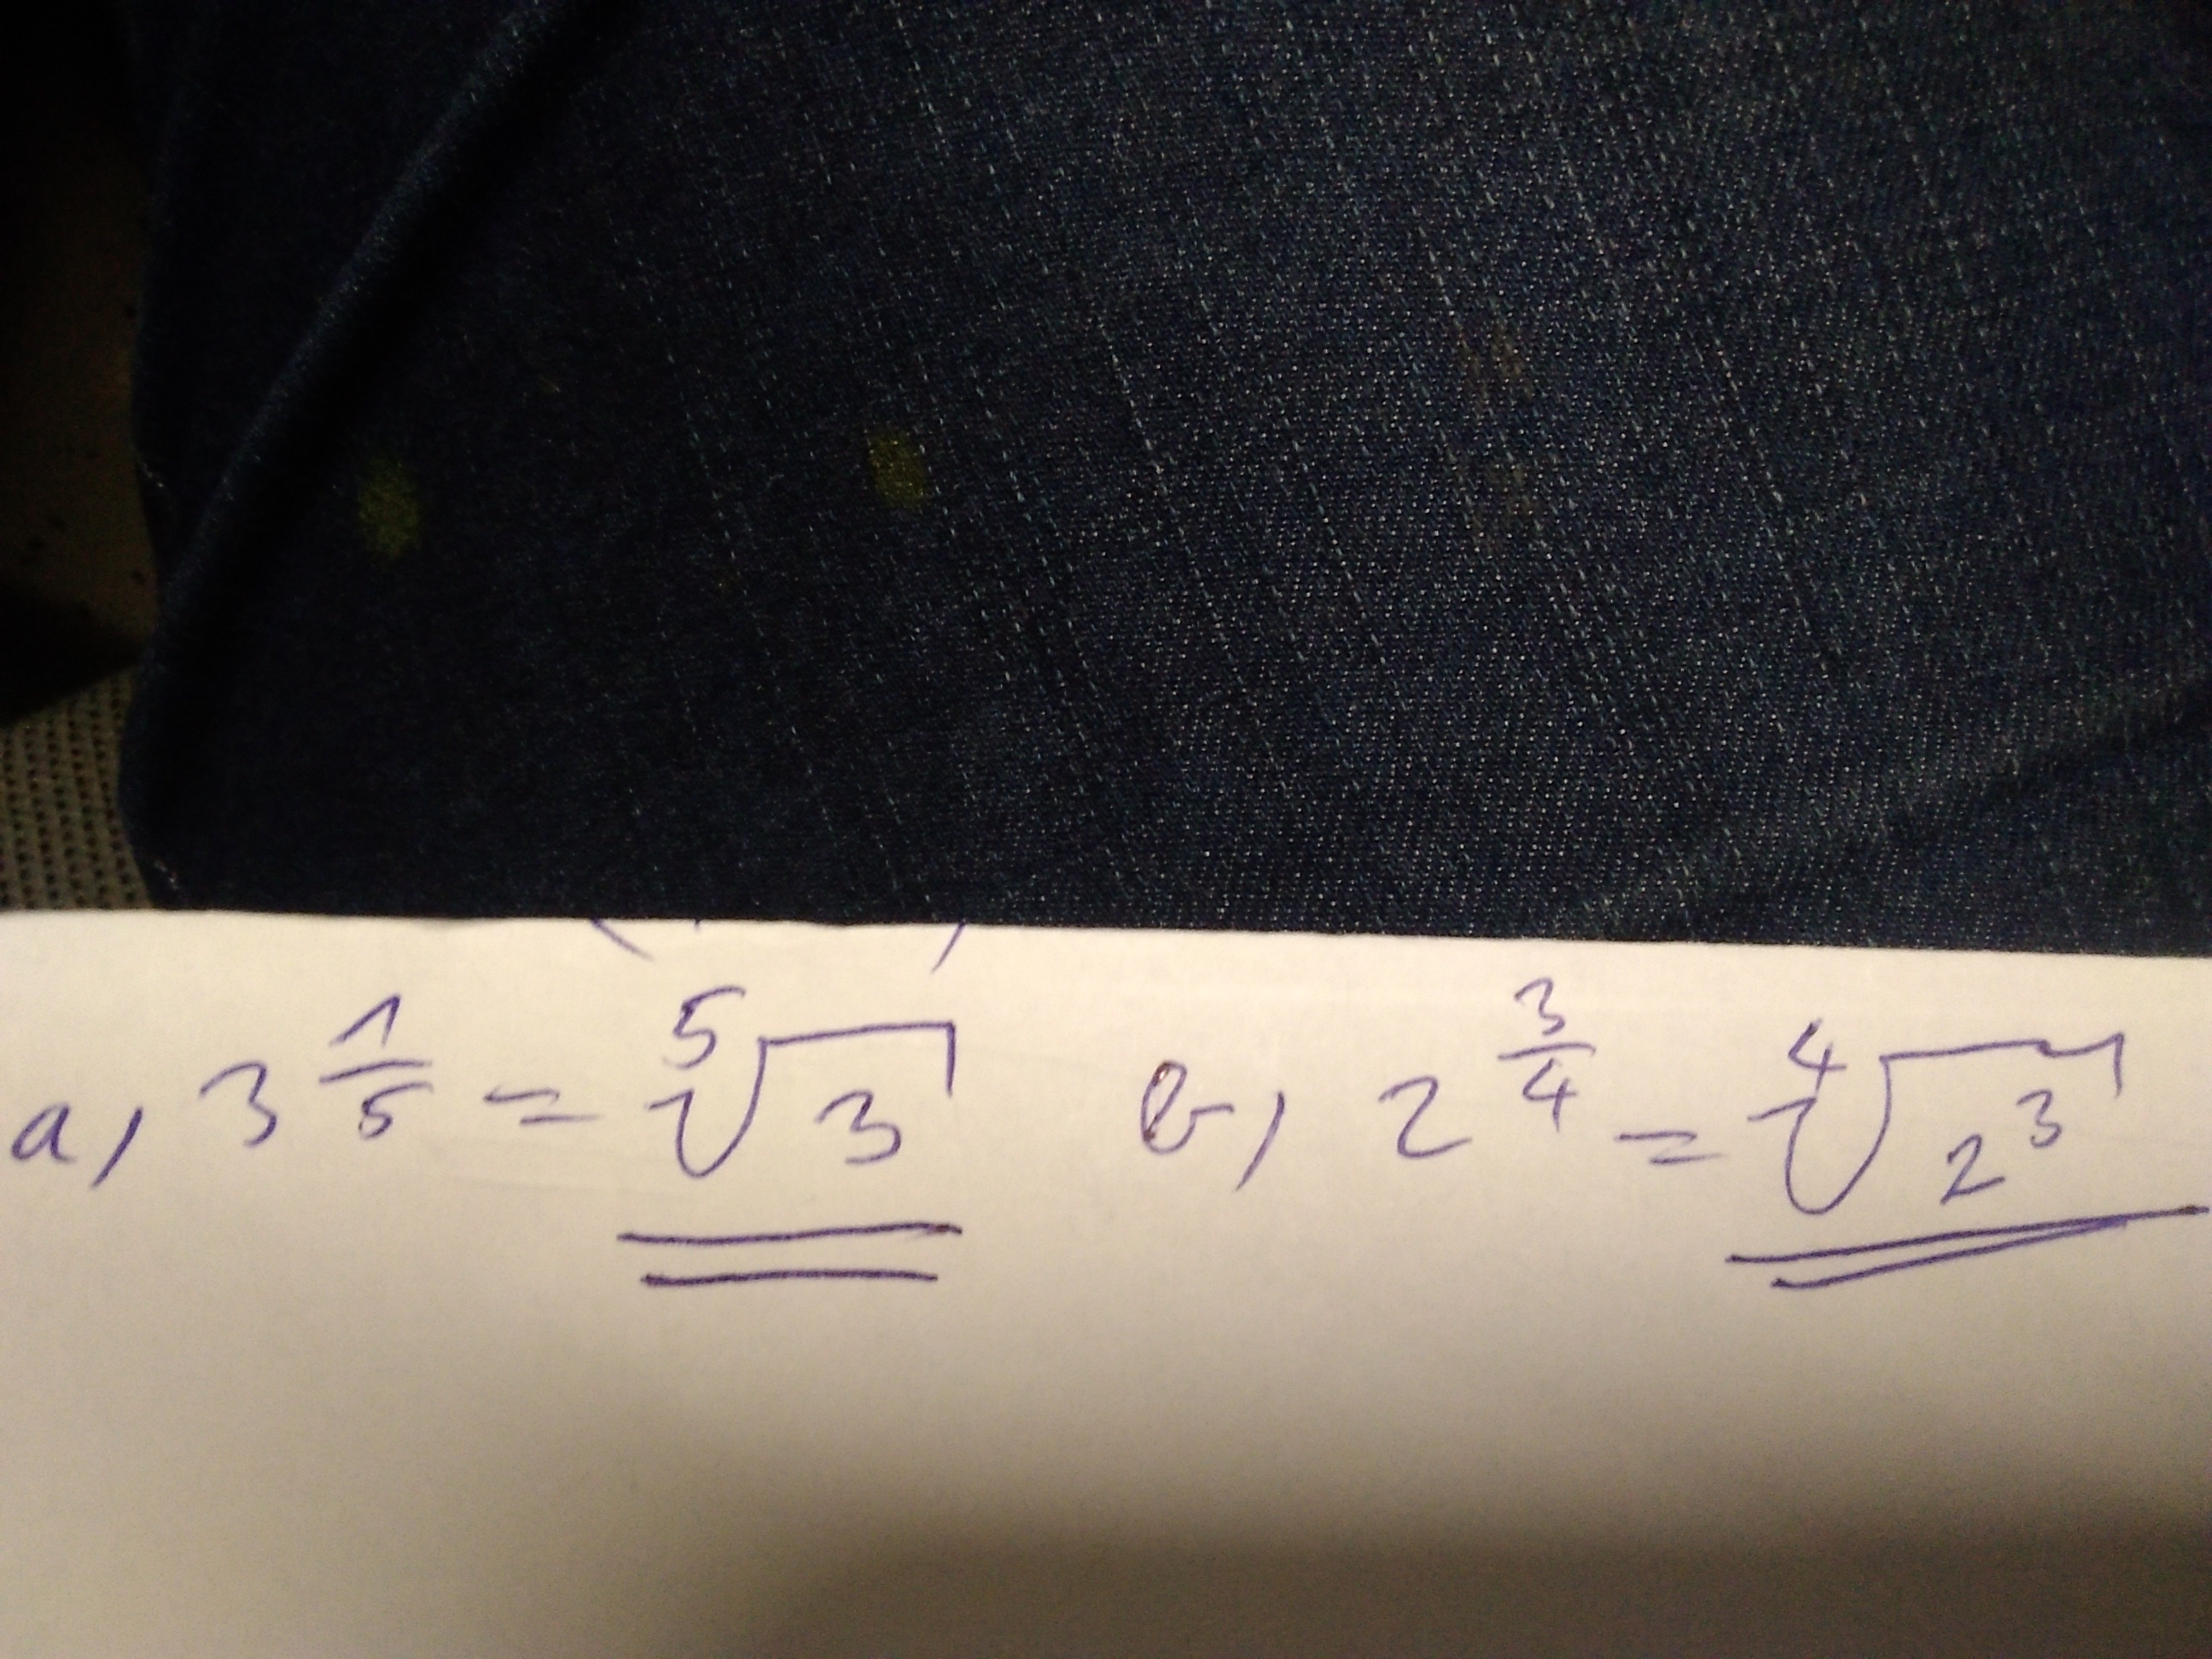 a, 3^{1/5} = \sqrt[5]{3} b, 2^{3/4} = \sqrt[4]{2^3}